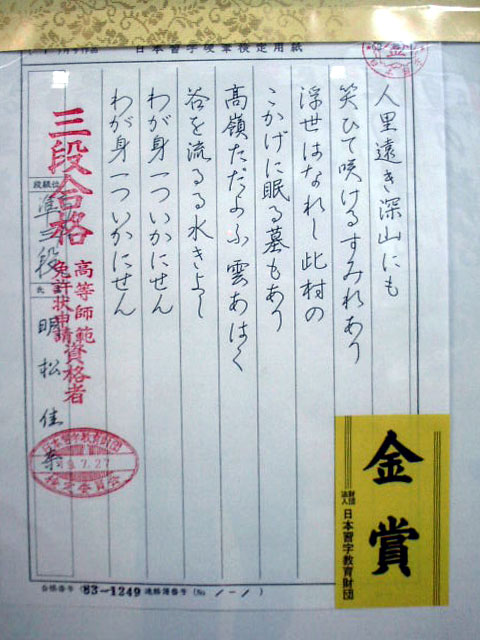 日本習字硬筆検定用紙
人里遠き深山にも
笑ひて咲けるすみれあり
浮世はなれし此村の
こかげに眠る墓もあり
高嶺たゞよふ雲あはく
谷を流るる水きよし
わが身一ついかにせん
わが身一ついかにせん
三段合格
高等師範資格者
免許状申請
段級位 準三段 氏名 明松佳奈
日本習字教育財団
7.27
金賞
財団法人 日本習字教育財団
合格番号 (83-1249 連絡簿番号 (No 1-1)